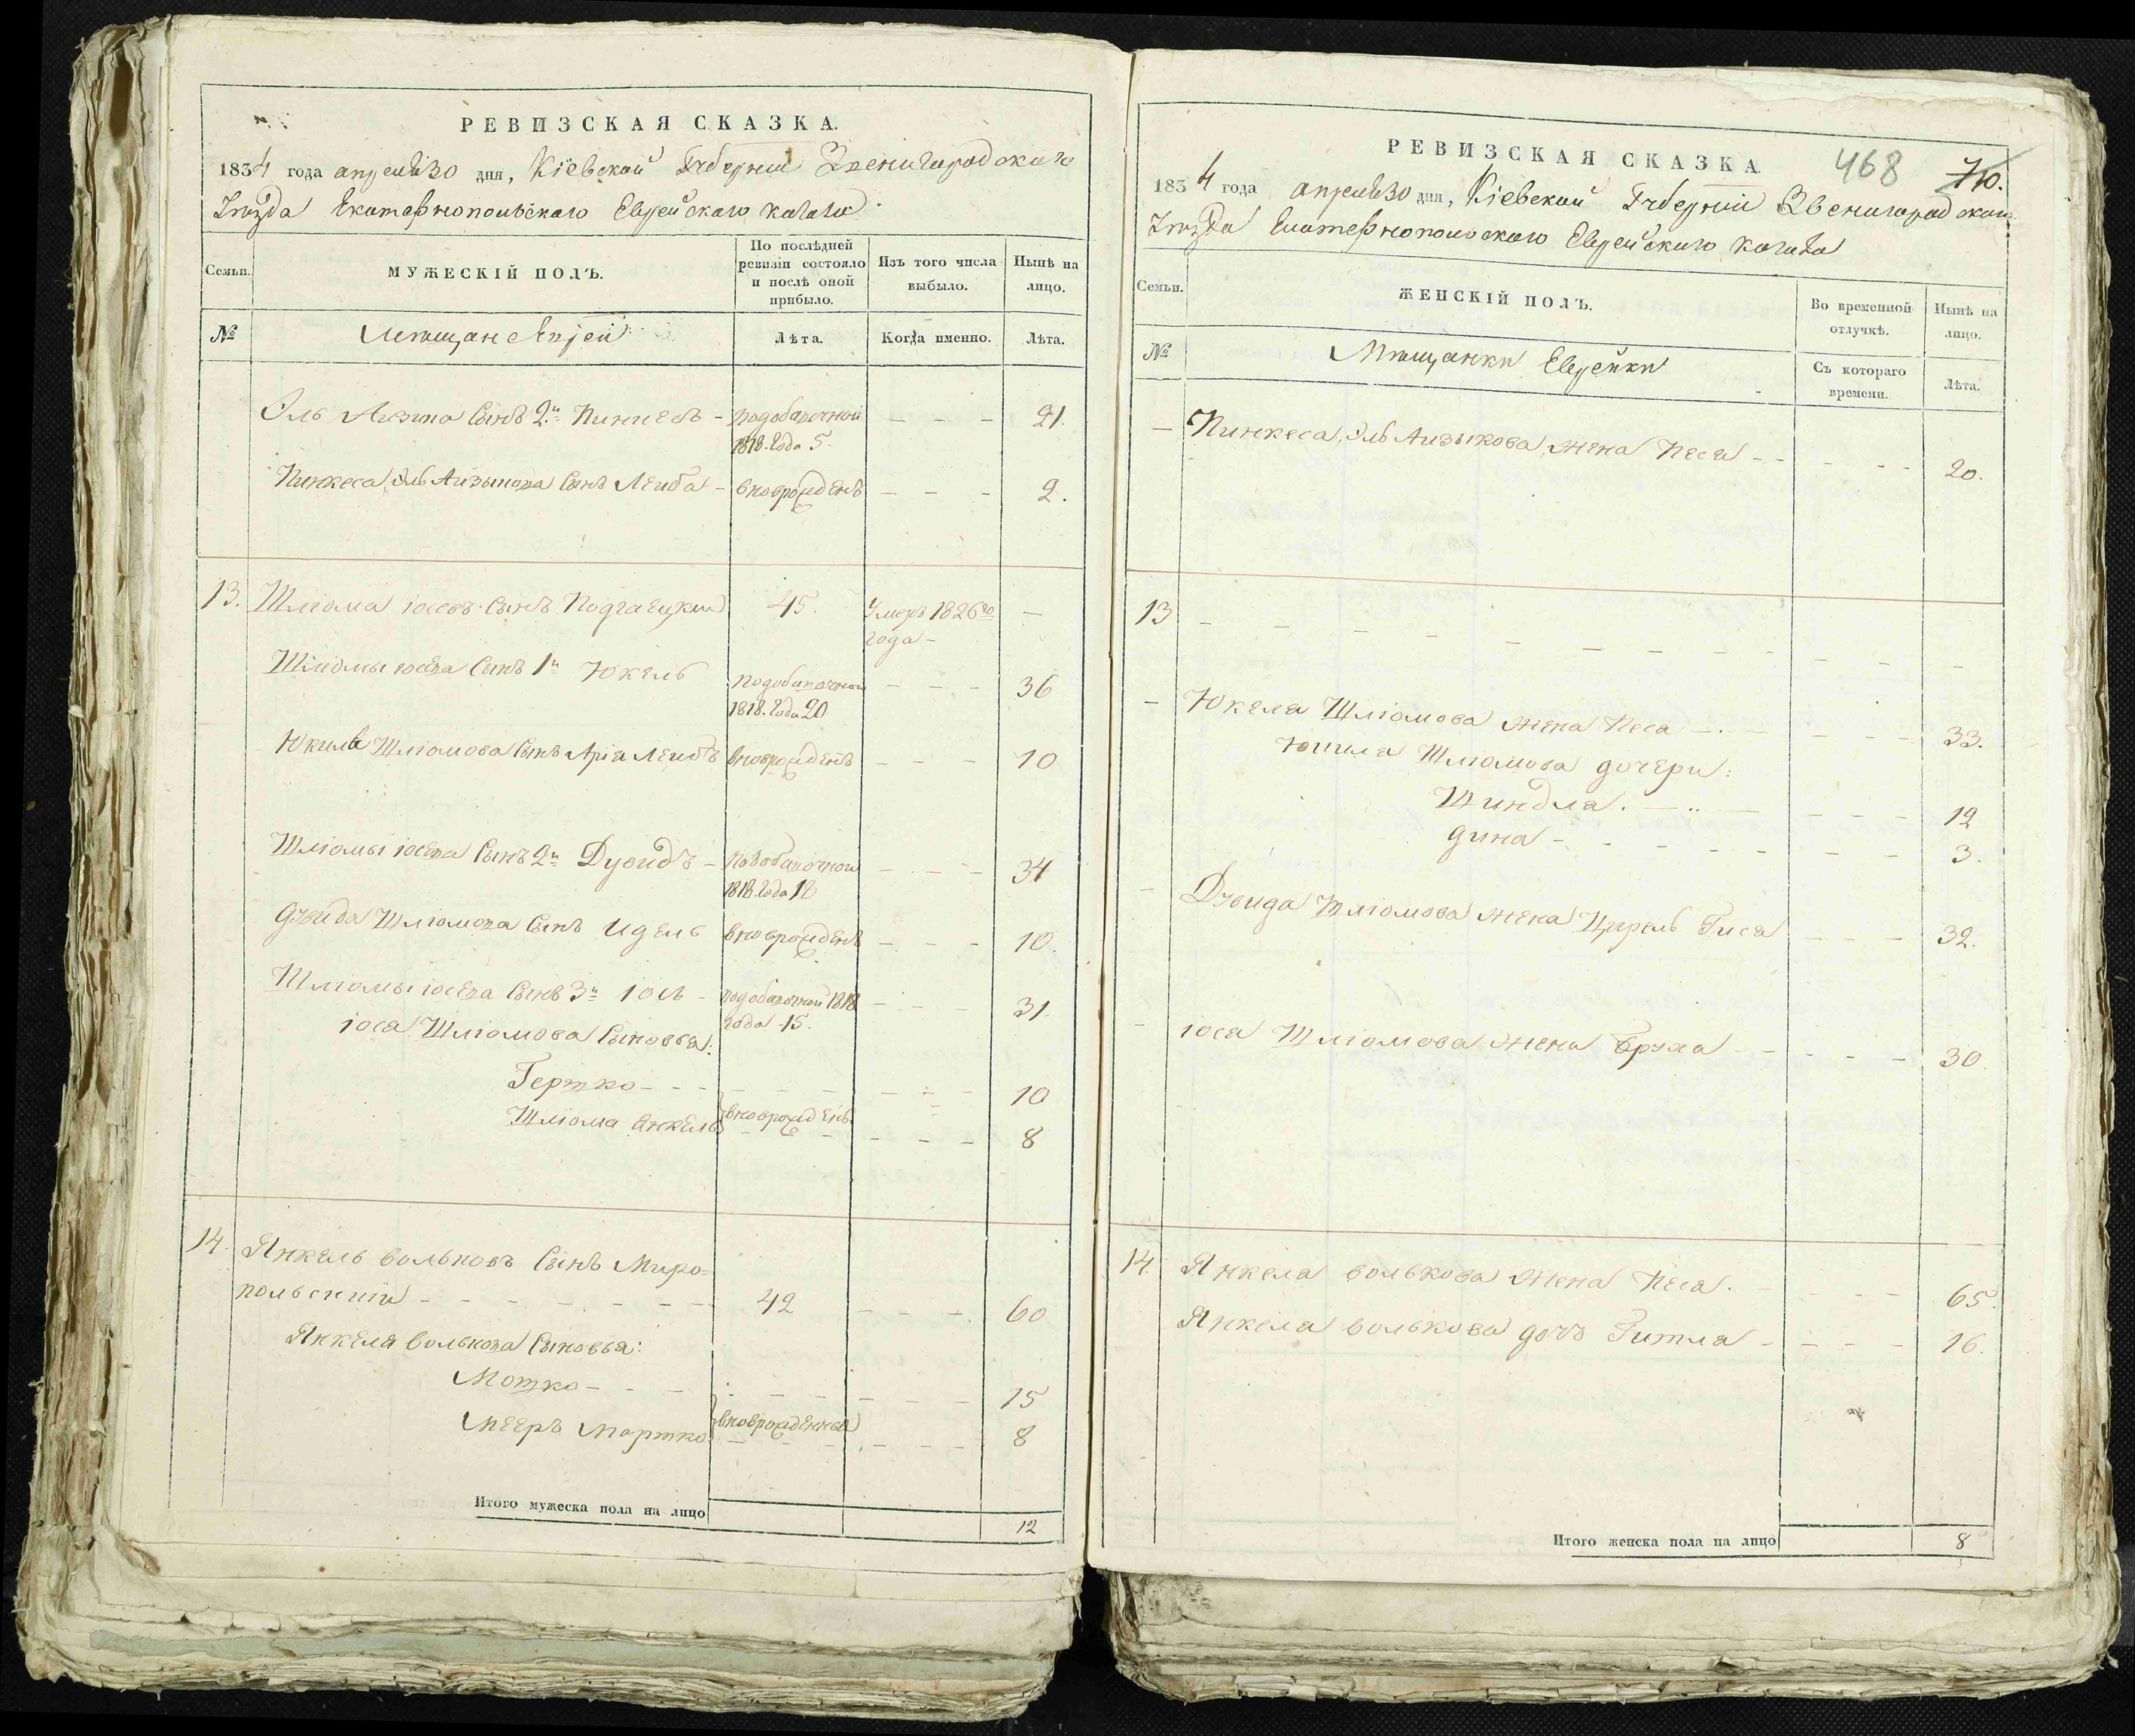 РЕВИЗСКАЯ СКАЗКА.
1834 года апреля 30 дня, Кіевской Губерніи Звенигородскаго
Уѣзда Екатеринопольскаго Еврейскаго кагала
Семьи.
МУЖЕСКІЙ ПОЛЪ.
По послѣдней ревизіи состояло и послѣ оной прибыло.
Изъ того числа выбыло.
Нынѣ на лицо.
№
Мещане Евреи
Лѣта.
Когда именно.
Лѣта.
Эль Аизика Сынъ 2й Пинкесъ - подобавочной 1818. года 5. - - - 21.
Пинкеса Эль Аизыкова Сынъ Леиба - вноврожденъ - - - 2.
13. Шліома іосевъ Сынъ Подгаецкий 45. Умеръ 1826го года - —
Шліомы іосева Сынъ 1й Юкель подобавочной 1818. года 20 - - - 36
Юкиля Шліомова Сынъ Аріа Леибъ вноврожденъ - - - 10
Шліомы іосева Сынъ 2й Дувидъ - подобавочной 1818. года 18 - - - 34
Дувида Шліомова Сынъ Идель вноврожденъ - - - 10.
Шліомы іосева Сынъ 3й іось - подобавочной 1818 года 15. - - - 31
іося Шліомова Сыновья:
Гершко - - - 10
Шліома Анкель вноврожденъ - - - 8
14. Янкель вольковъ Сынъ Миро=
польский - - - 42 - - - 60
Янкеля волькова Сыновья:
Мошко - - - 15
Мееръ Мортко вноврожденные - - - 8
Итого мужеска пола на лицо 12
РЕВИЗСКАЯ СКАЗКА.
468 70.
1834 года апреля 30 дня, Кіевской Губерніи Звенигородскаго
Уѣзда Екатеринопольскаго Еврейскаго кагала
Семьи.
ЖЕНСКІЙ ПОЛЪ.
Во временной отлучкѣ.
Нынѣ на лицо.
№
Мещанки Еврейки
Съ котораго времени.
Лѣта.
— Пинкеса Эль Аизыкова жена Песя - - - 20.
13 - - - - - -
— Юкеля Шліомова жена Песа - - - 33.
Юкиля Шліомова дочери:
Шиндля. - - - 12
Дина - - - 3.
— Дувида Шліомова жена Цирель Гися - - - 32.
- іося Шліомова жена Бруха - - - 30.
14. Янкеля волькова жена Песа. - - - 65.
Янкеля волькова дочь Гитля - - - 16.
Итого женска пола на лицо 8